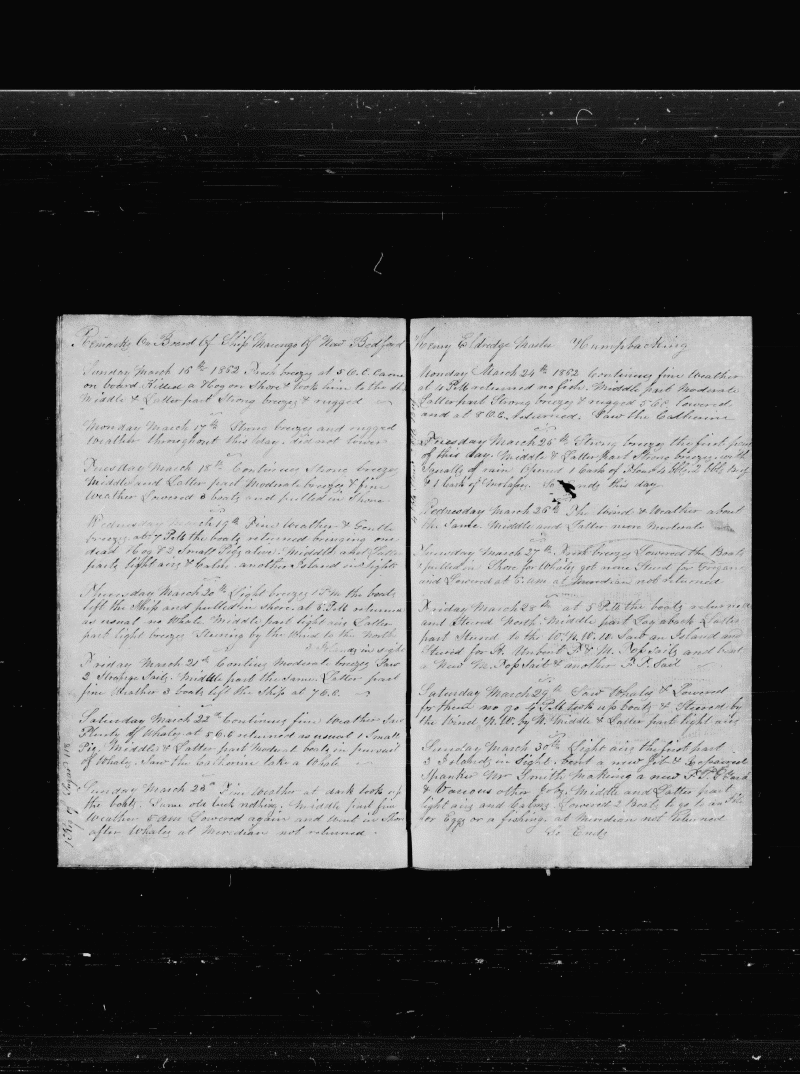 Remarks On Board Of Ship Marengo Of New Bedford
Sunday March 16th 1852 Fresh breezes at 5 O.C. Came
on board Killed a Hog on Shore & took him to the
Middle & Latter part Strong breezes & rugged
Monday March 17th Strong breezes and rugged
Weather throughout this day. did not lower
Tuesday March 18th Continues Strong breezes
Middle and Latter part Moderate breezes & fine
Weather Lowered 3 boats and pulled in Shore
Wednesday March 19th Fine Weather & Gentle
breezes at 7 P.M. the boats returned bringing one
dead Hog & 2 Small Pigs alive. Middle and Latter
parts light airs & Calm another Island in sight
Thursday March 20th Light breezes 1 P.M. the boats
left the Ship and pulled in shore. at 6 P.M. returned
as usual no Whale Middle part light airs Latter
part light breezes Steering by the Wind to the North
2 Islands in sight
Friday March 21st Contins Moderate breezes Saw
2 Strange Sails. Middle part the same. Latter part
fine Weather 3 boats left the Ship at 7 O.C.
Saturday March 22nd Continues fine Weather Saw
Plenty of Whales at 5 O.C. returned as usual 1 Small
Pig. Middle & Latter part Moderate boats in pursuit
of Whales. Saw the Catherine take a Whale
Sunday March 23rd Fine Weather at dark took up
the boats. Same old luck nothing. Middle part fine
Weather 5 AM Lowered again and went in Shore
after Whales at Meridian not returned.
1 Keg of Sugar 118
Henry Eldredge Master Humpbacking
Monday March 24th 1852 Continues fine Weather
at 4 P.M. returned no fish. Middle part Moderate
Latter part Strong breezes & rugged 5 O.C. lowered
and at 8 O.C. returned. Saw the Catherine
Tuesday March 25th Strong breezes the first part
of this day. Middle & Latter part Strong breezes with
Squalls of rain Opened 1 Cask of 2 Bbls Beef
& 1 Cask of Molasses. So ends this day
Wednesday March 26th The Wind & Weather about
the Same. Middle and Latter more Moderate
Thursday March 27th Fresh breezes Lowered the Boats
& pulled in Shore for Whales got none Steerd for
and Lowered at 6 am at Meridian not returned
Friday March 28th at 5 P.M. the boats returned
and Steerd North. Middle part Lay aback Latter
part Steerd to the W.N.W. Saw an Island and
Steerd for it. Unbent F & M. Topsails and bent
a New M. Topsail & another F.T. Sail
Saturday March 29th Saw Whales & Lowered
for them no go 4 P.M. took up boats & Steered by
the Wind, N.W. by N. Middle & Latter parts light airs
Sunday March 30th Light airs the first part
2 Islands in Sight. bent a new Jib &
Spanker Mr Smith making a new
& Various other Jobs. Middle and Latter part
light airs and Calms Lowered 2 Boats to go to an Isle
for Eggs or a fishing. at Meridian not returned
So Ends